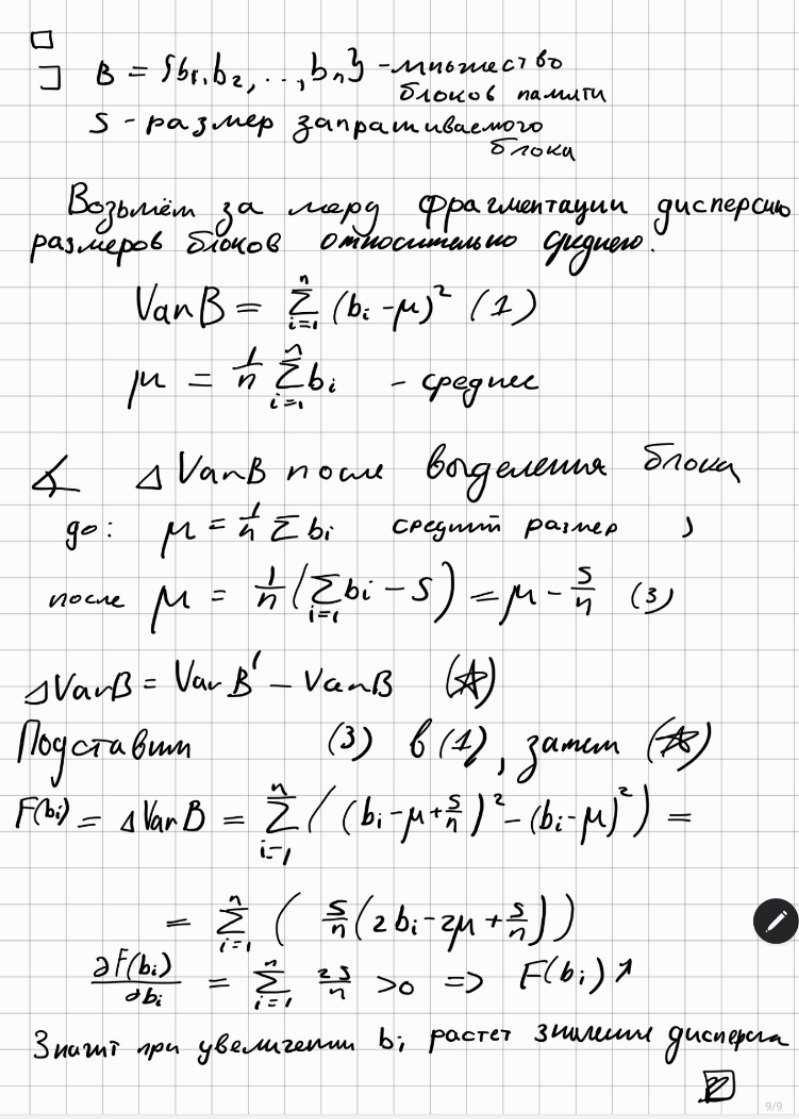 B = {b₁, b₂, ..., bₙ} - множество
блоков памяти
S - размер запрашиваемого
блока
Возьмём за меру фрагментации дисперсию
размеров блоков относительно среднего.
Var B = Σᵢ₌₁ⁿ (bᵢ - μ)² (1)
μ = 1/n Σᵢ₌₁ⁿ bᵢ - среднее
∢ Δ Var B после выделения блока
до: μ = 1/n Σ bᵢ средний размер )
после μ = 1/n (Σᵢ₌₁ bᵢ - S) = μ - S/n (3)
Δ Var B = Var B' - Var B (☆)
Подставим (3) в (1), затем (☆)
F(bᵢ) = Δ Var B = Σᵢ₌₁ⁿ ((bᵢ - μ + S/n)² - (bᵢ - μ)²) =
= Σᵢ₌₁ⁿ (S/n (2bᵢ - 2μ + S/n))
∂F(bᵢ)/∂bᵢ = Σᵢ₌₁ⁿ 2S/n > 0 => F(bᵢ) ↗
Значит при увеличении bᵢ растет значение дисперсии
9/9